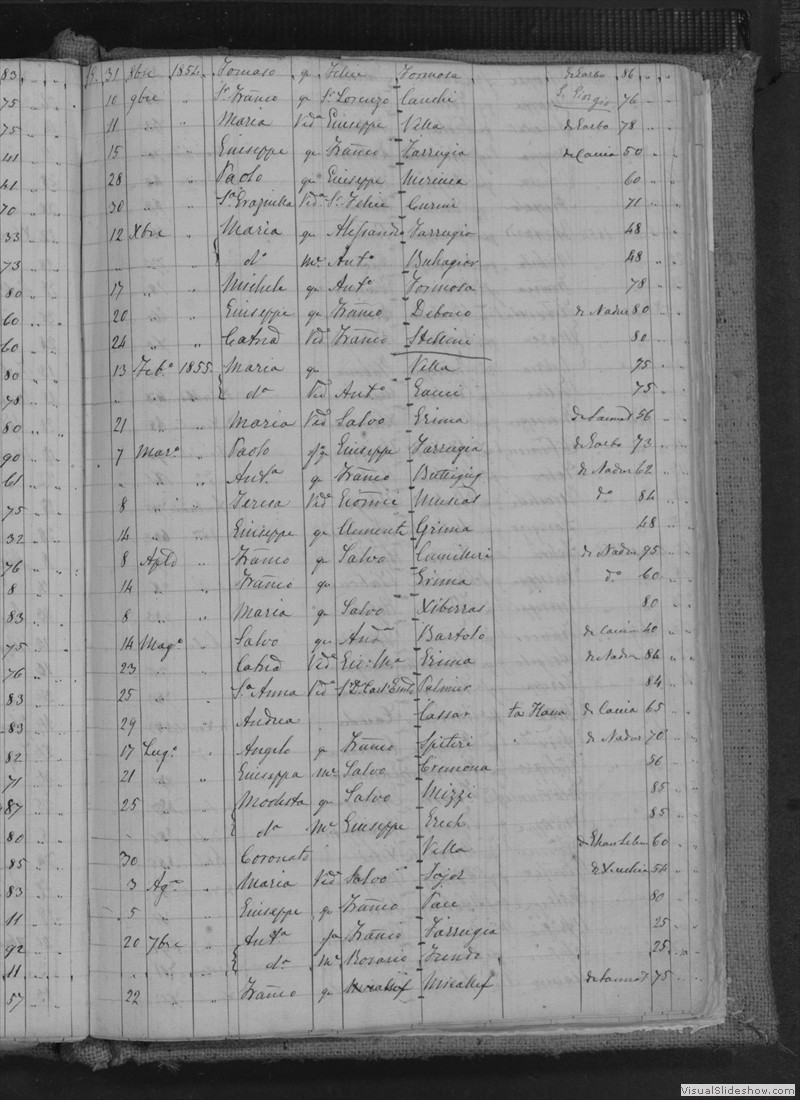 83 9. 31 8bre 1854 Tomaso q Felice Formosa de Garbo 86
75 10 9bre " Sr. Franco q Sr. Lorenzo Cauchi S. Giorgio 76
75 11 " " Maria Vida Giuseppe Vella de Garbo 78
41 15 " " Giuseppe q Franco Farrugia de Caccia 50
41 28 " " Paolo q Giuseppe 60
70 30 " " Sra Graziulla Vida Sr. Felice Curmi 71
33 12 Xbre " Maria q Alessandro Farrugia 48
73 " " " da me Anto Buhagiar 48
80 17 " " Michele q Anto Formosa 78
60 20 " " Giuseppe q Franco Debono de Nadur 80
60 24 " " Catna Vida Franco Stellini 80
80 13 Febo 1855 Maria q Vella 75
78 " " " da Vida Anto Gauci 75
80 21 " " Maria Vida Salvo Grima de Sannat 56
90 7 Maro " Paolo q Giuseppe Farrugia de Garbo 73
61 " " " Anta q Franco Buttigieg de Nadur 62
75 8 " " Teresa Vida Gio Muscat do 84
32 14 " " Giuseppe q Clemente Grima 48
76 8 Aple " Franco q Salvo Camilleri de Nadur 95
8 14 " " Franco q Grima do 60
83 8 " " Maria q Salvo Xiberras 80
75 14 Mago " Salvo q Anda Bartolo de Caccia 40
76 23 " " Catna Vida Gio: Ma Grima de Nadur 84
83 25 " " Sra Anna Vida Sr. Dr. Palmier 84
83 29 " " Andrea Cassar ta Kaua de Caccia 65
82 17 Lugo " Angelo q Franco Spiteri de Nadur 70
71 21 " " Giuseppa me Salvo Cremona 56
87 25 " " Modesta q Salvo Mizzi 85
80 " " " da me Giuseppe Grech 85
85 30 Coronato Vella 60
83 3 Ago " Maria Vida Salvo 54
11 5 " " Giuseppe q Franco Pace 80
92 20 7bre " Anta q Franco Farrugia 25
11 " " " da me Rosario 25
57 22 Franco q Micallef Micallef de Sannat 75
VisualSlideshow.com